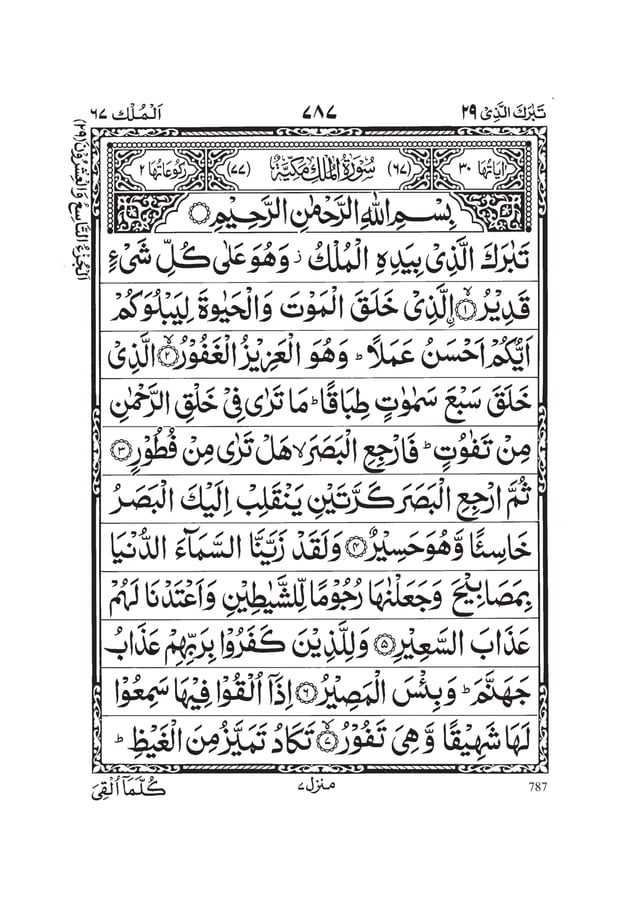 تَبٰرَكَ الَّذِیْ ٢٩
٧٨٧
اَلْمُلْك ٦٧
اَلْجُزْءُ التَّاسِعُ وَالْعِشْرُوْنَ (٢٩)
اٰيَاتُهَا ٣٠ (٦٧) سُوْرَةُ الْمُلْكِ مَكِّيَّةٌ (٧٧) رُكُوْعَاتُهَا ٢
بِسْمِ اللّٰهِ الرَّحْمٰنِ الرَّحِيْمِ
تَبٰرَكَ الَّذِیْ بِيَدِهِ الْمُلْكُ ز وَهُوَ عَلٰی كُلِّ شَیْءٍ
قَدِيْرُ ۙ﴿١﴾ ۨالَّذِیْ خَلَقَ الْمَوْتَ وَالْحَيٰوةَ لِيَبْلُوَكُمْ
اَيُّكُمْ اَحْسَنُ عَمَلًا ؕ وَهُوَ الْعَزِيْزُ الْغَفُوْرُ ۙ﴿٢﴾ الَّذِیْ
خَلَقَ سَبْعَ سَمٰوٰتٍ طِبَاقًا ؕ مَا تَرٰی فِیْ خَلْقِ الرَّحْمٰنِ
مِنْ تَفٰوُتٍ ؕ فَارْجِعِ الْبَصَرَ ۙ هَلْ تَرٰی مِنْ فُطُوْرٍ ﴿٣﴾
ثُمَّ ارْجِعِ الْبَصَرَ كَرَّتَيْنِ يَنْقَلِبْ اِلَيْكَ الْبَصَرُ
خَاسِئًا وَّهُوَ حَسِيْرٌ ﴿٤﴾ وَلَقَدْ زَيَّنَّا السَّمَآءَ الدُّنْيَا
بِمَصَابِيْحَ وَجَعَلْنٰهَا رُجُوْمًا لِّلشَّيٰطِيْنِ وَاَعْتَدْنَا لَهُمْ
عَذَابَ السَّعِيْرِ ﴿٥﴾ وَلِلَّذِيْنَ كَفَرُوْا بِرَبِّهِمْ عَذَابُ
جَهَنَّمَ ؕ وَبِئْسَ الْمَصِيْرُ ﴿٦﴾ اِذَآ اُلْقُوْا فِيْهَا سَمِعُوْا
لَهَا شَهِيْقًا وَّهِیَ تَفُوْرُ ۙ﴿٧﴾ تَكَادُ تَمَيَّزُ مِنَ الْغَيْظِ ؕ
787
منزل ٧
كُلَّمَآ اُلْقِیَ